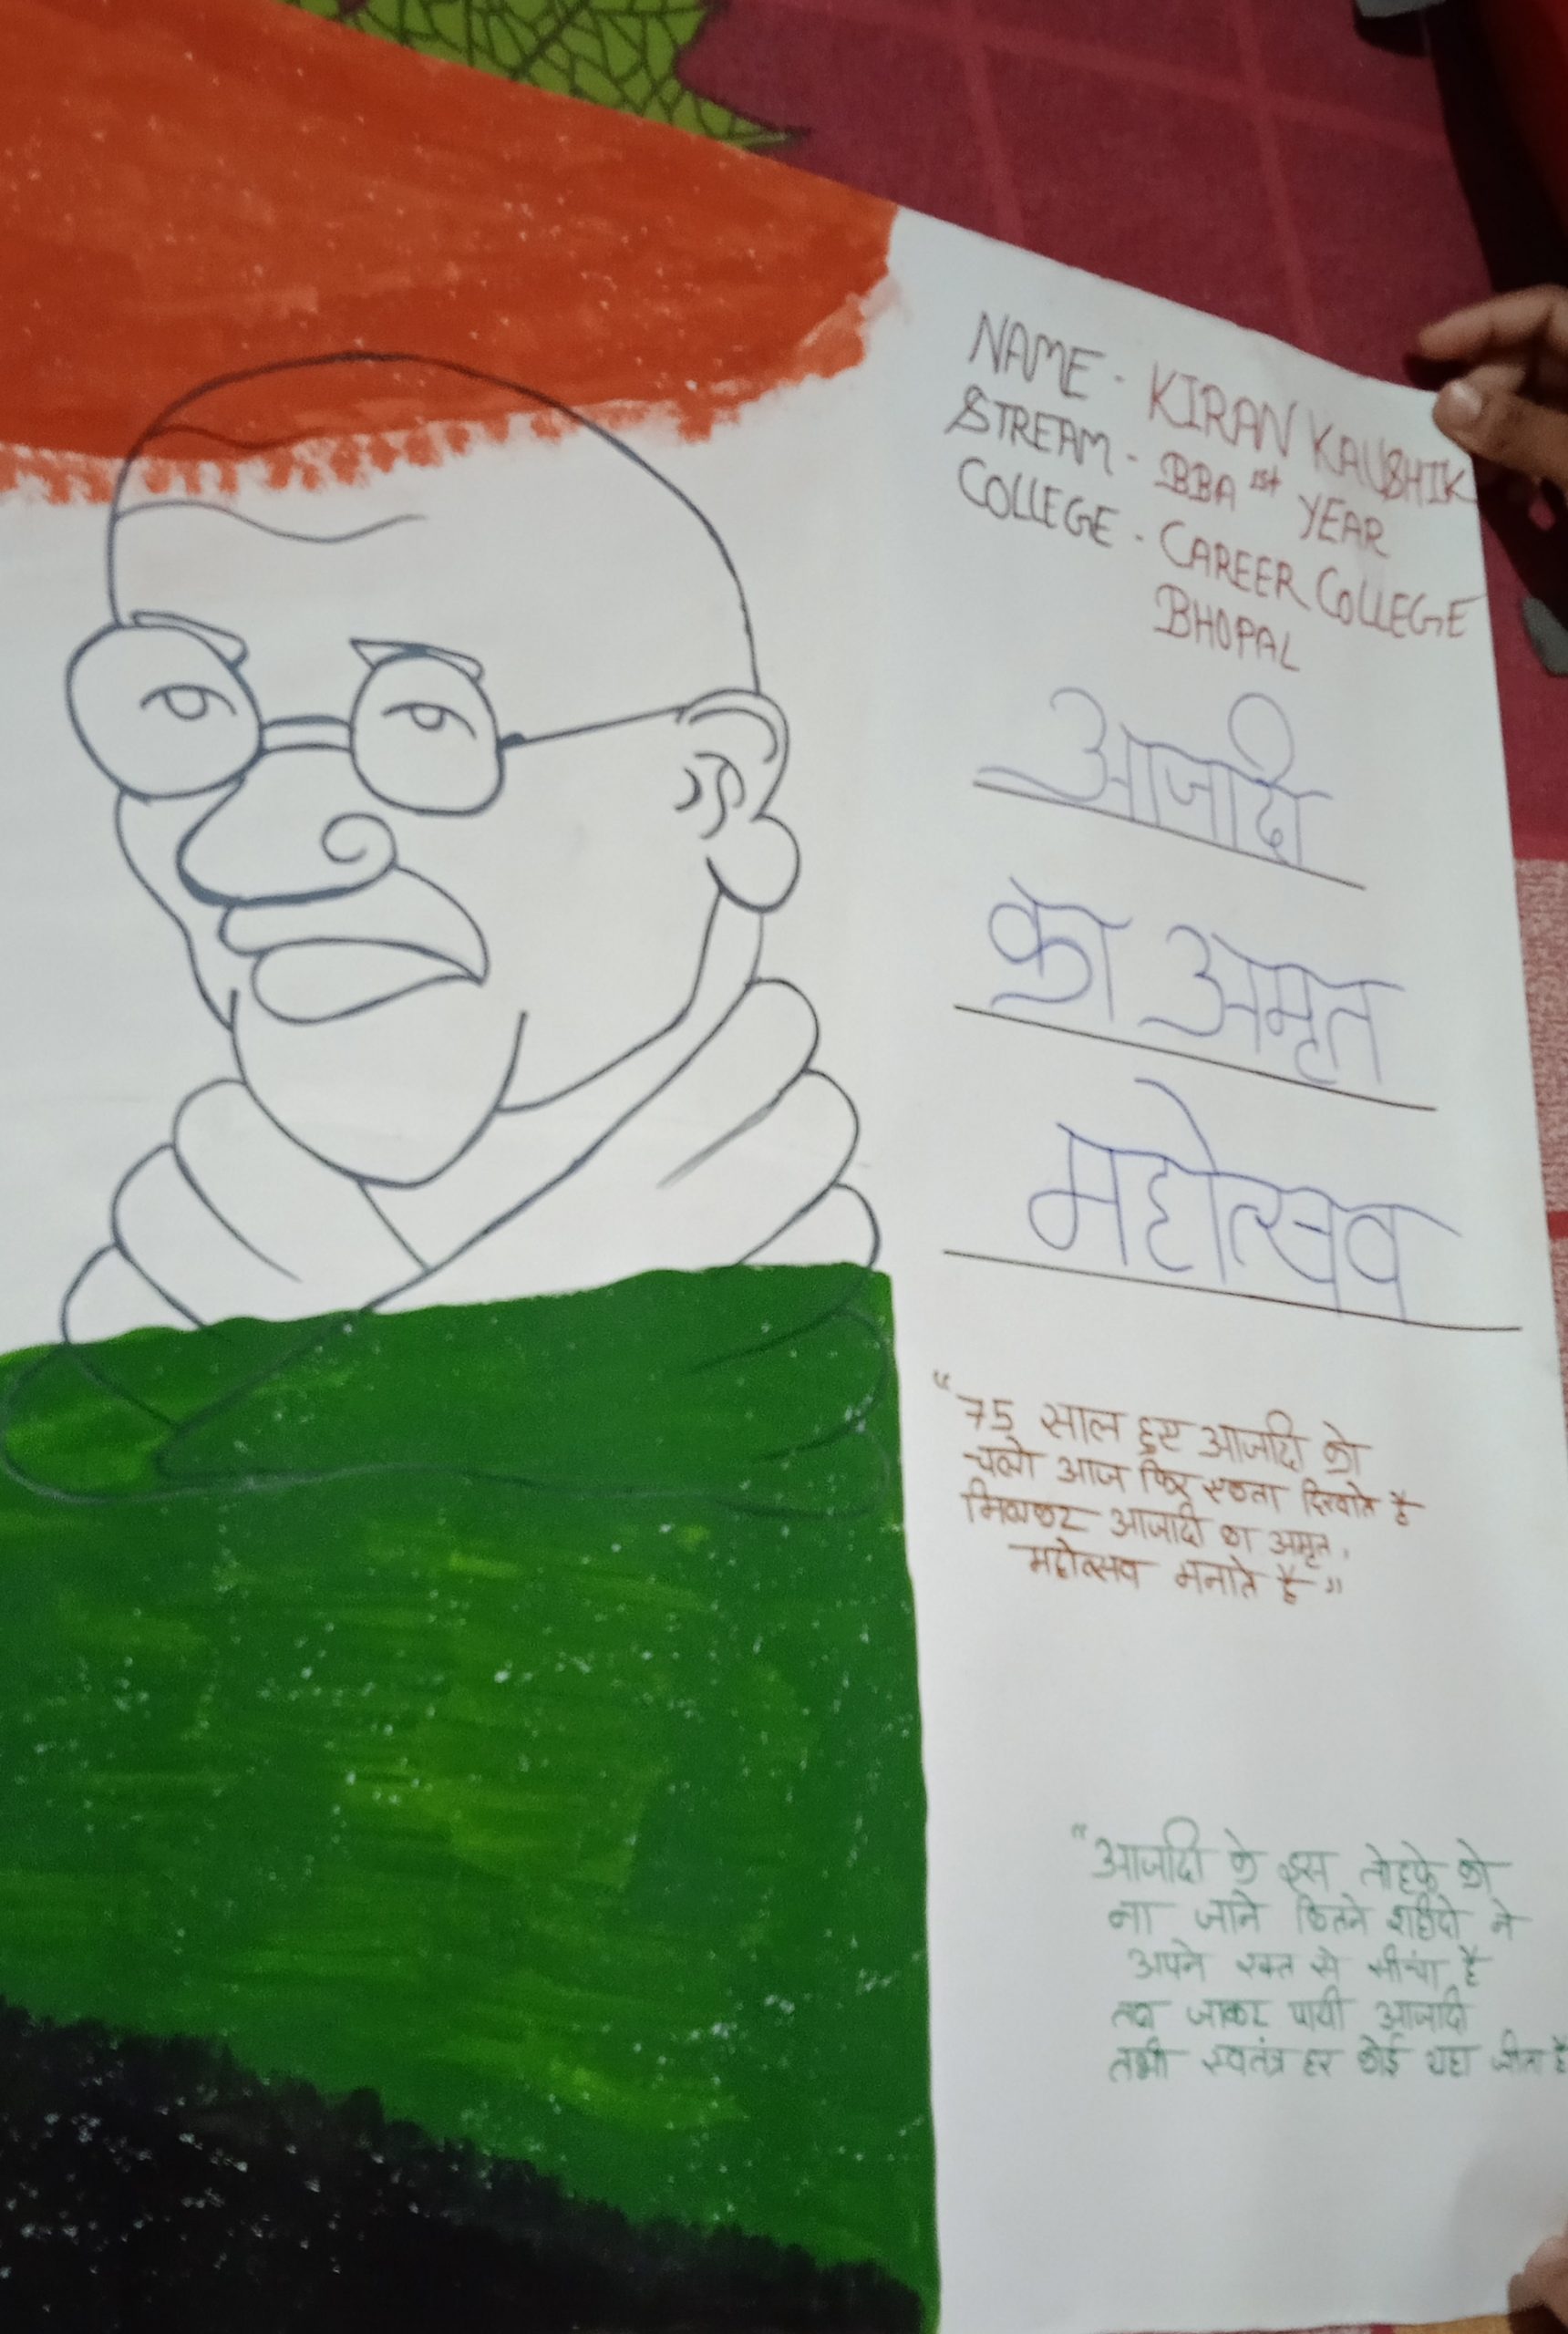 NAME - KIRAN KAUSHIK
STREAM - BBA 1st YEAR
COLLEGE - CAREER COLLEGE
BHOPAL
आजादी
का अमृत
महोत्सव
"75 साल हुए आजादी को
चलो आज फिर एकता दिखाते है
मिलकर आजादी का अमृत
महोत्सव मनाते है"
"आजादी के इस तोहफे को
ना जाने कितने शहीदो ने
अपने रक्त से सींचा है
तब जाकर पायी आजादी
तभी स्वतंत्र हर कोई यहा जीता है